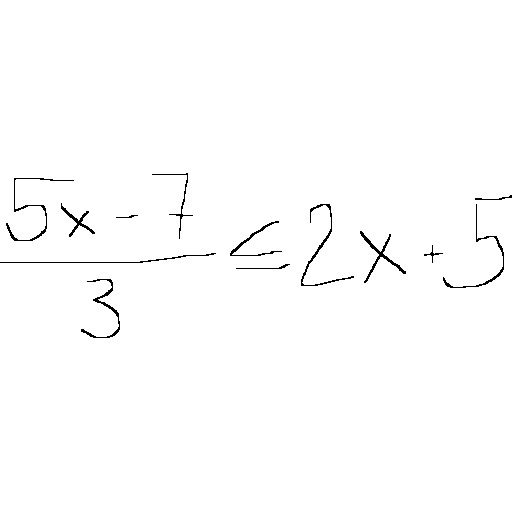 5x - 7
3
≤ 2x + 5